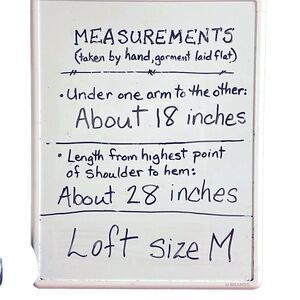 MEASUREMENTS
(taken by hand, garment laid flat)
• Under one arm to the other:
About 18 inches
• Length from highest point
of shoulder to hem:
About 28 inches
Loft size M
U BRANDS